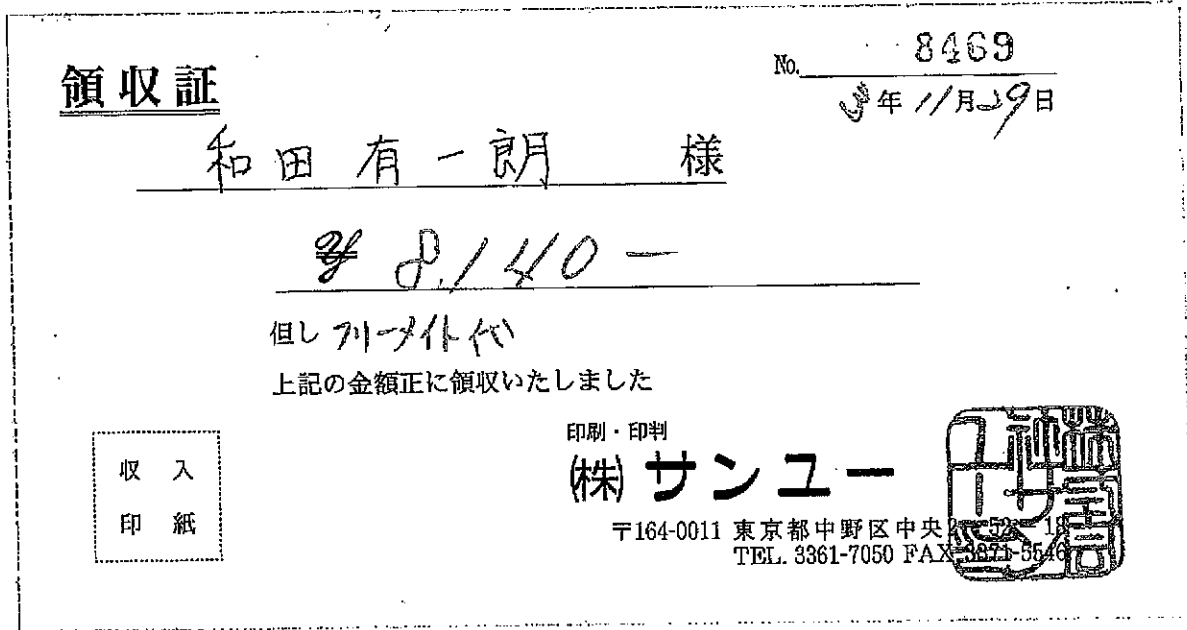 領収証
No. 8469
年 11月29日
和田 有一朗 様
¥ 8,140 -
但し フリーメイト代
上記の金額正に領収いたしました
収入
印紙
印刷・印判
(株) サンユー
〒164-0011 東京都中野区中央2-52-18
TEL. 3361-7050 FAX 3371-5546